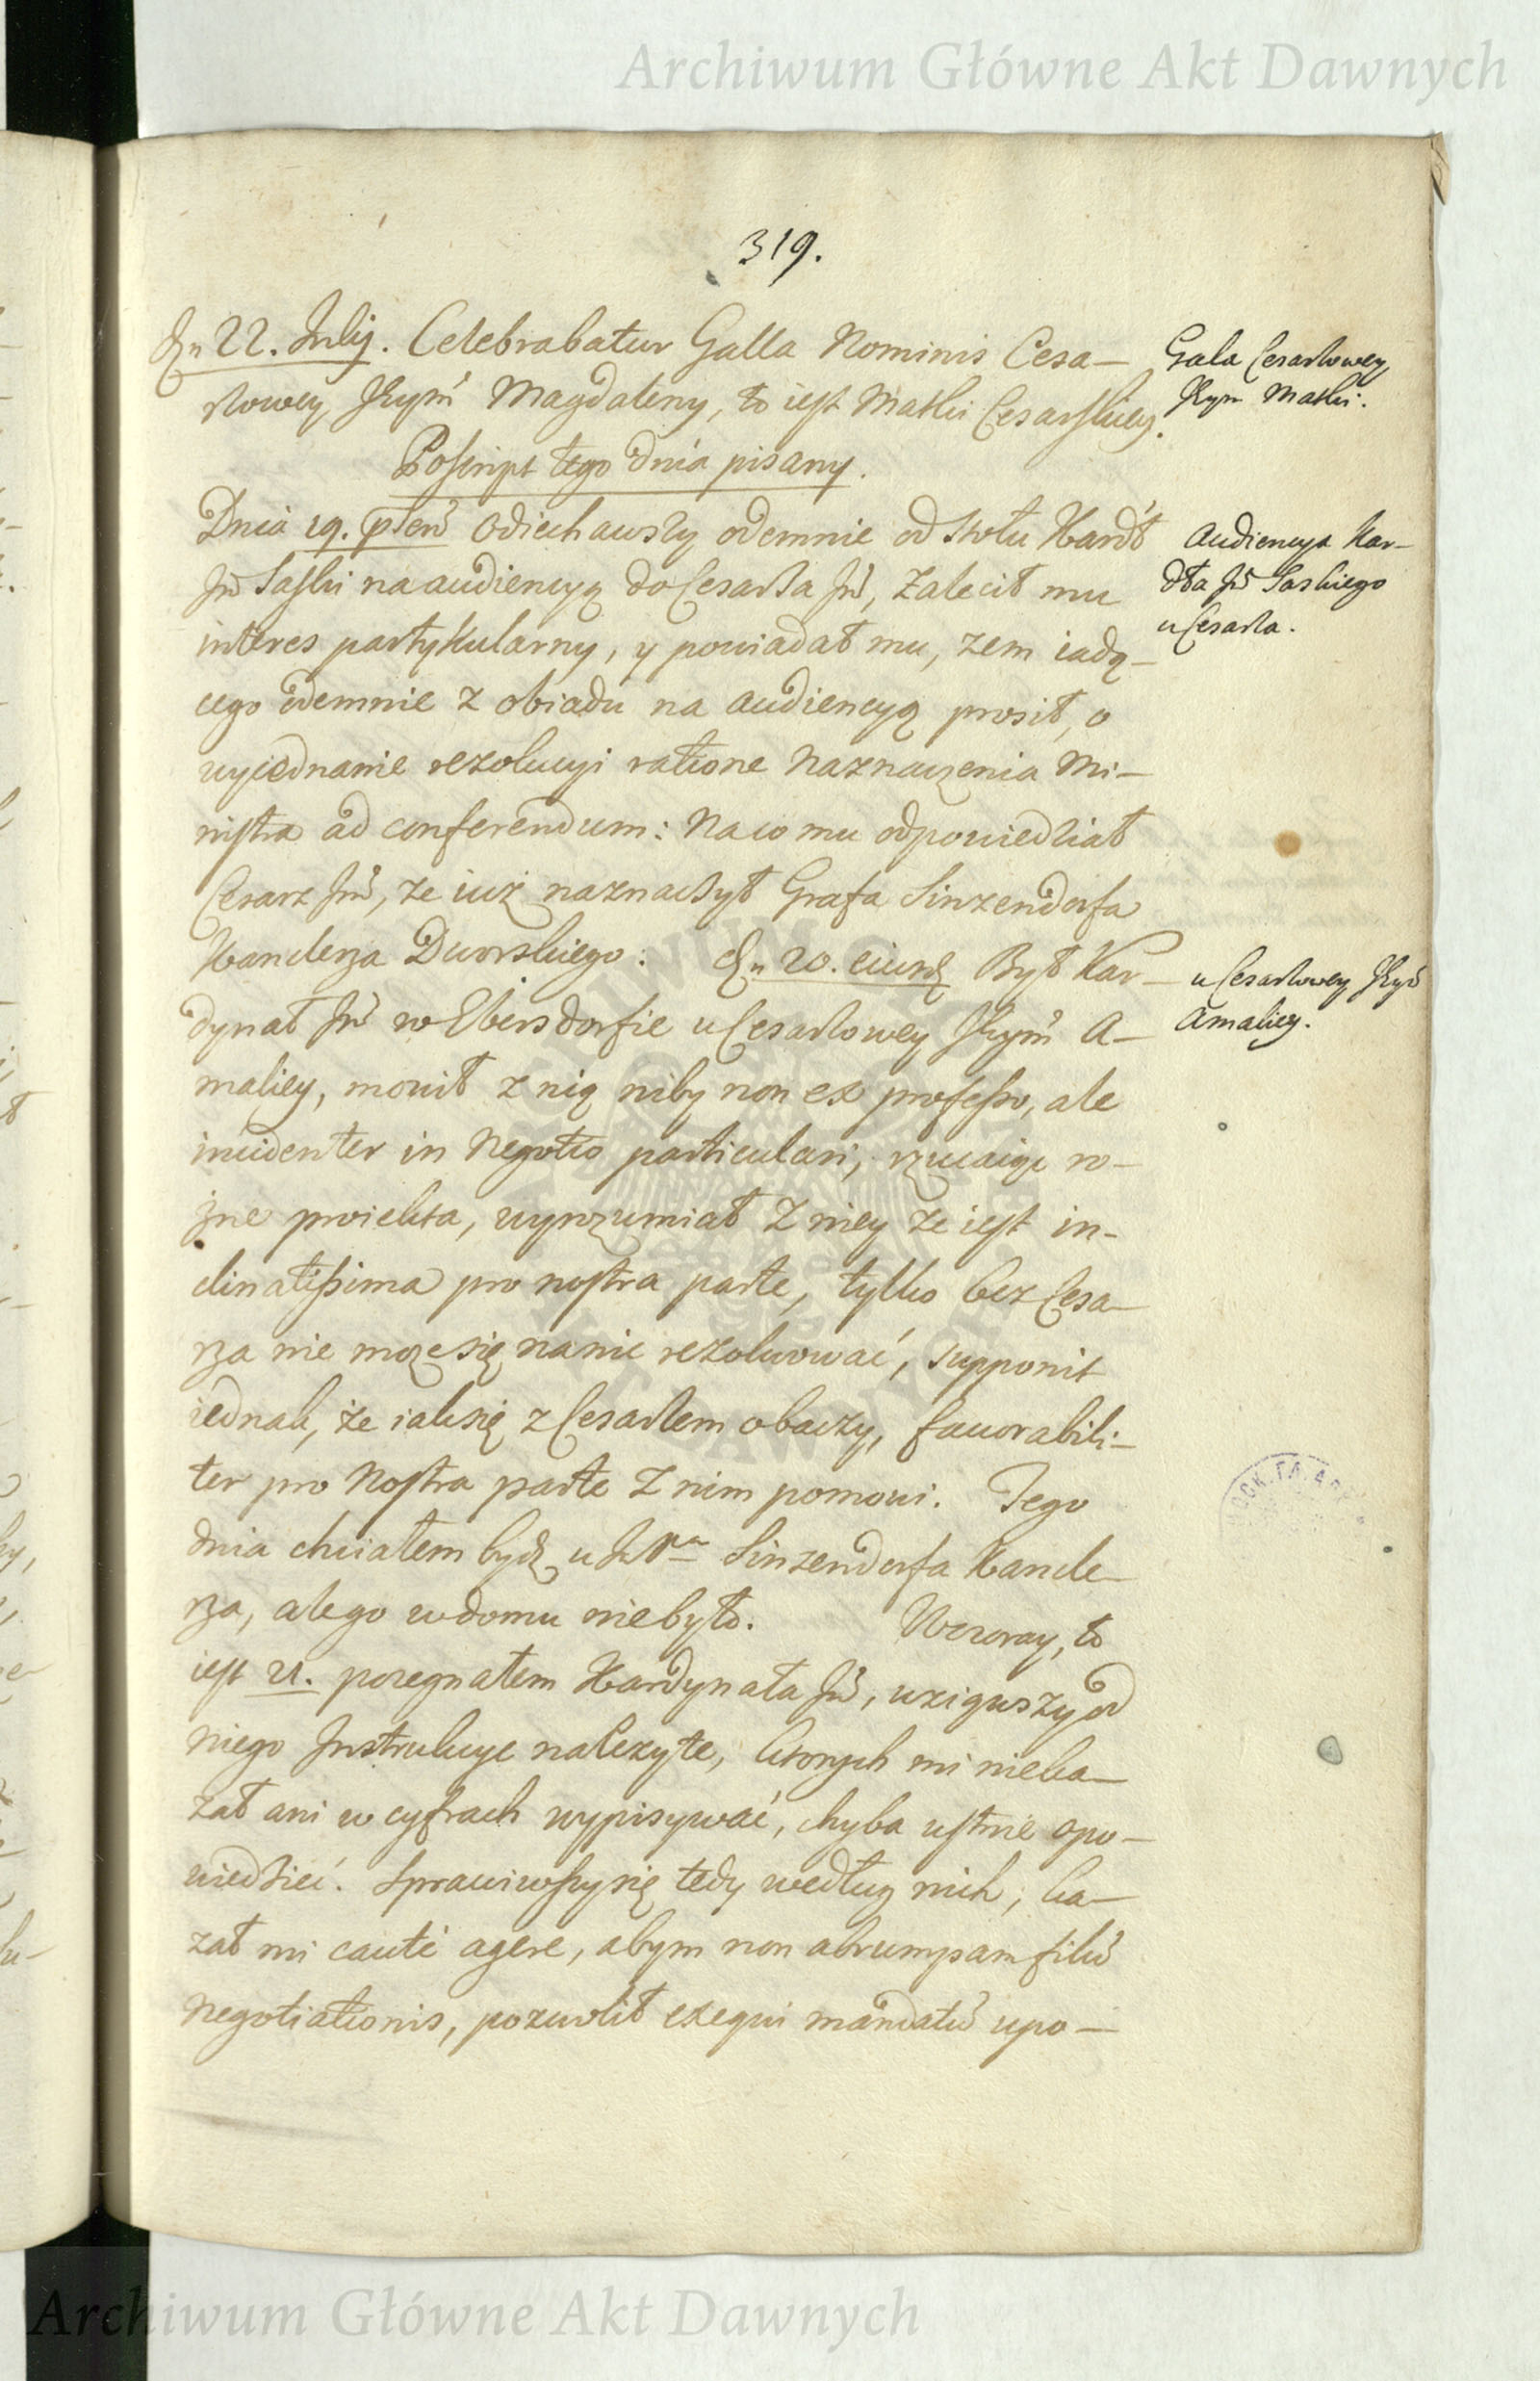 Archiwum Główne Akt Dawnych
319.
Dn 22. Julij. Celebrabatur Galla Nominis Cesa–
rzowey Jeym̃ Magdaleny, to iest Matki Cesarskiey.
Gala Cesarzowey
Jeym Matki.
Poscript tego dnia pisany.
Dnia 19. pñtis Odiechawszy odemnie od stołu Kardł
Jm̃ Saski na audiencyą do Cesarza Jm̃, zalecił mu
interes partykularny, y powiadał mu, żem iadą–
cego odemnie z obiadu na audiencyą prosił, o
wyiednanie rezolucyi ratione Naznaczenia Mi–
nistra ad conferendum: Naco mu odpowiedział
Cesarz Jm̃, ze iuż naznaczył Grafa Sinzendorfa
Kanclerza Dworskiego: Dn 20. eiusd Był Kar–
dynał Jm̃ w Ebersdorfie u Cesarzowey Jeym̃ A–
maliey, mowił z nią niby non ex professo, ale
incidenter in Negotio particulari, rzucaiąc ro–
żne proiekta, wyrozumiał z niey że iest in–
clinatissima pro nostra parte, tylko bez Cesa–
rza nie możesię nanic rezolwować, supponit
iednak, że iaksię z Cesarzem obaczy, favorabili–
ter pro Nostra parte z nim pomowi. Tego
dnia chciałem bydź u Sinzendorfa Kancle–
rza, alego wdomu niebyło. Wczoray, to
iest 21. pożegnałem Kardynała Jm̃, wziąwszy od
niego Instrukcye należyte, ktorych mi nieka–
zał ani w cyfrach wypisywać, chyba ustnie opo–
wiedzieć. Sprawiwszysię tedy według nich, ka–
zał mi cautè agere, abym non abrumpam filũ
negotiationis, pozwolił exequi mandatũ upo–
Audiencya Kar–
dła Jm̃ Saskiego
u Cesarza.
u Cesarzowey Jeym̃
Amaliey.
Archiwum Główne Akt Dawnych